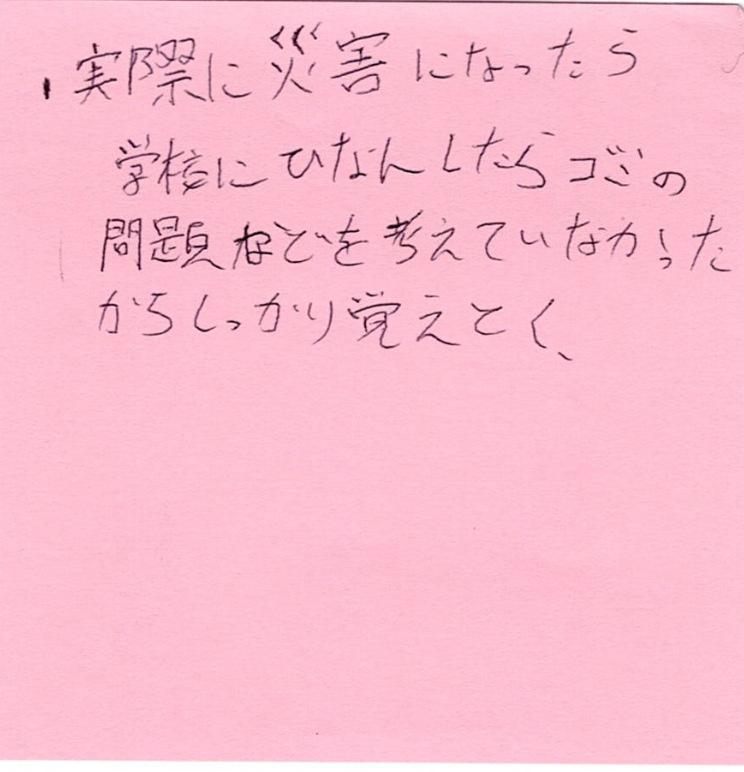 ・実際に災害になったら
学校にひなんしたらゴミの
問題などを考えていなかった
からしっかり覚えとく、